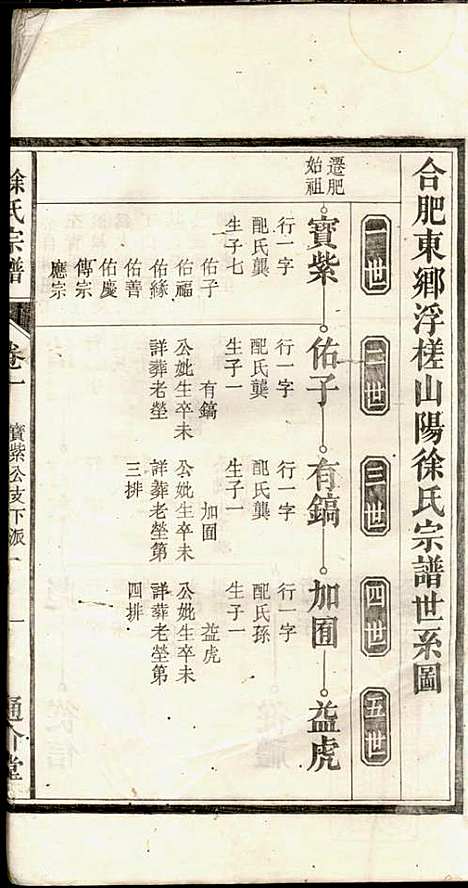 合肥東鄉浮槎山陽徐氏宗譜世系圖
一世
二世
三世
四世
五世
遷肥
始祖
寶紫
佑子
有鎬
加囿
益虎
行一字
配氏龔
生子七
佑子
佑福
佑緣
佑善
佑慶
傳宗
應宗
行一字
配氏龔
生子一
有鎬
公妣生卒未
詳葬老塋
行一字
配氏龔
生子一
加囿
公妣生卒未
詳葬老塋第
三排
行一字
配氏孫
生子一
益虎
公妣生卒未
詳葬老塋第
四排
徐氏宗譜
卷一
寶紫公支下派一
一
通介堂